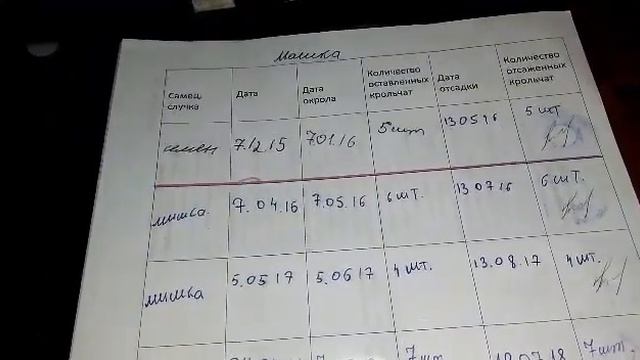 Машка
Самец, случка
Дата
Дата окрола
Количество оставленных крольчат
Дата отсадки
Количество отсаженных крольчат
семен 7.12.15 7.01.16 5 шт 13 05 16 5 шт
мишка 7.04.16 7.05.16 6 шт. 13 07 16 6 шт.
мишка 5.05 17 5.06 17 4 шт. 13.08.17 4 шт.
7 шт 7 шт.